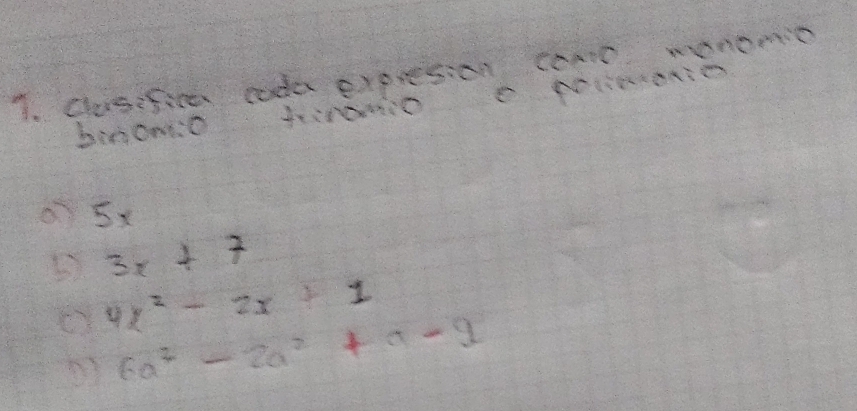 1. Clasifica cada expresion como monomio
binomio trinomio o polimonio
a) 5x
b) 3x + 7
c) 4x² - 2x + 1
D) 6a² - 2a² + a - 9